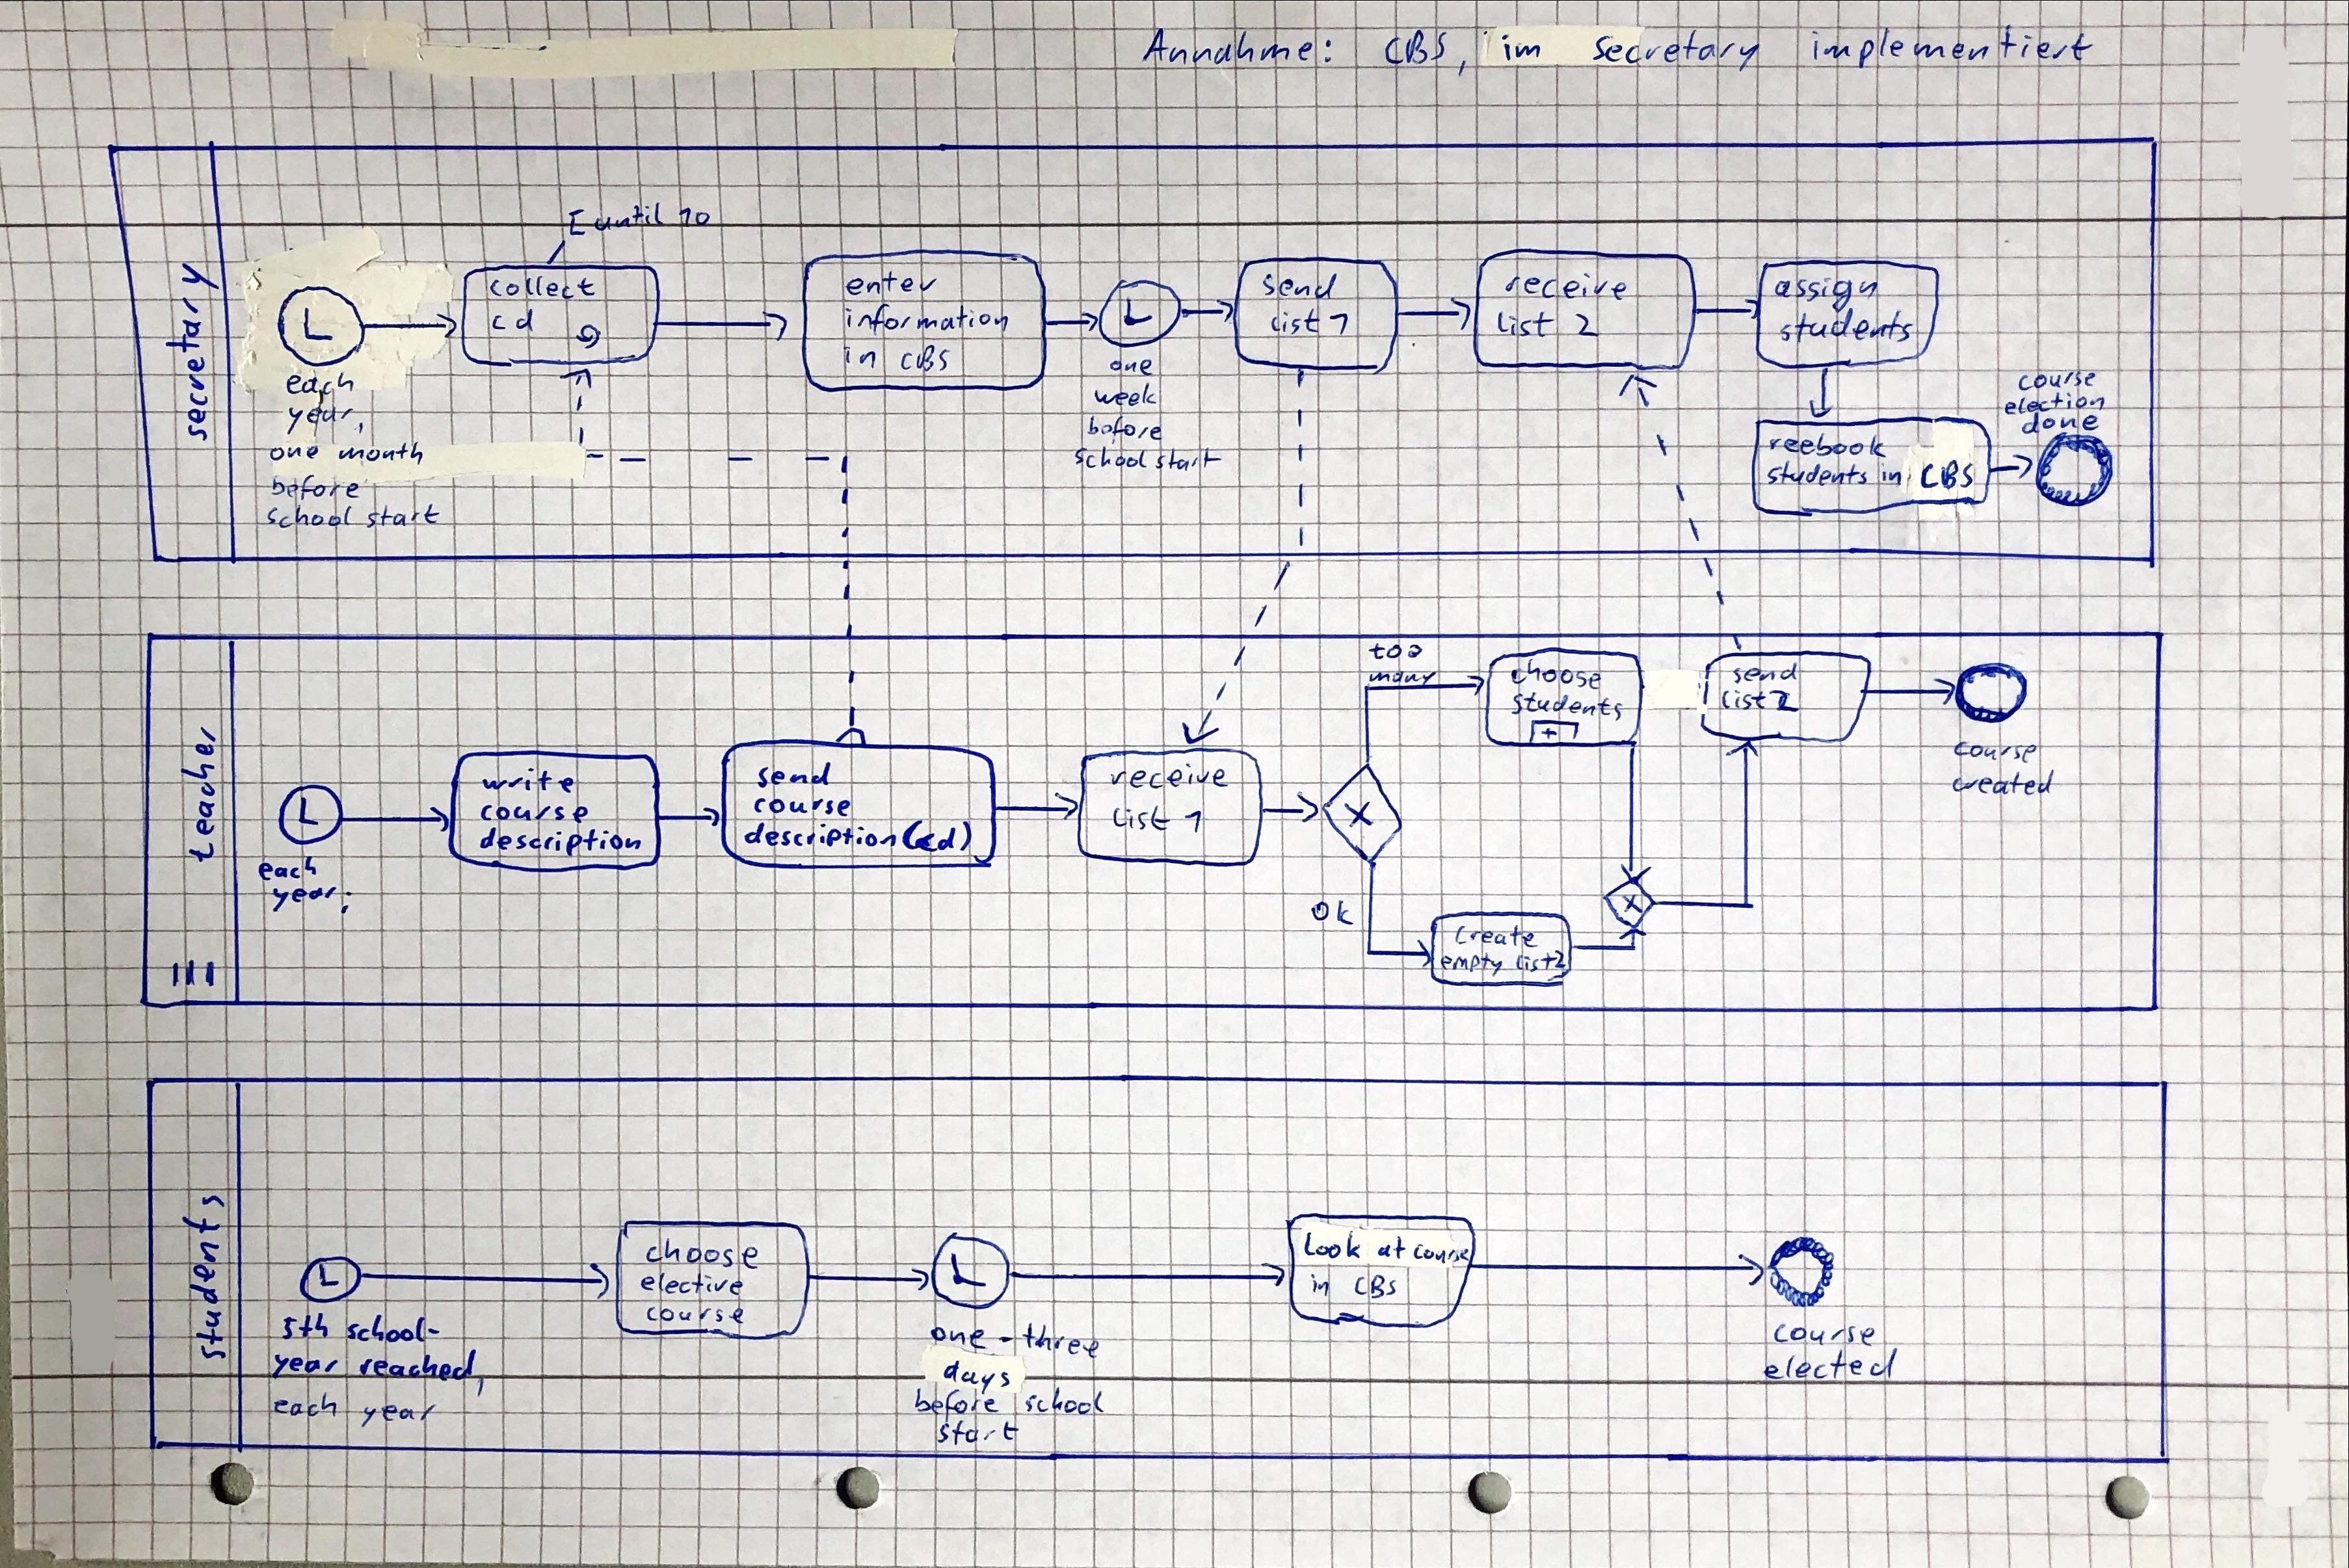 Annahme: CBS, im secretary implementiert
secretary
each
year,
one month
before
school start
until 10
collect
cd
enter
information
in CBS
one
week
before
school start
send
list 1
receive
list 2
assign
students
reebook
students in CBS
course
election
done
teacher
each
year;
write
course
description
send
course
description(cd)
receive
list 1
X
too
many
ok
choose
students
+
Create
empty list2
X
send
list 2
course
created
students
5th school-
year reached,
each year
choose
elective
course
one - three
days
before school
start
Look at course
in CBS
course
elected